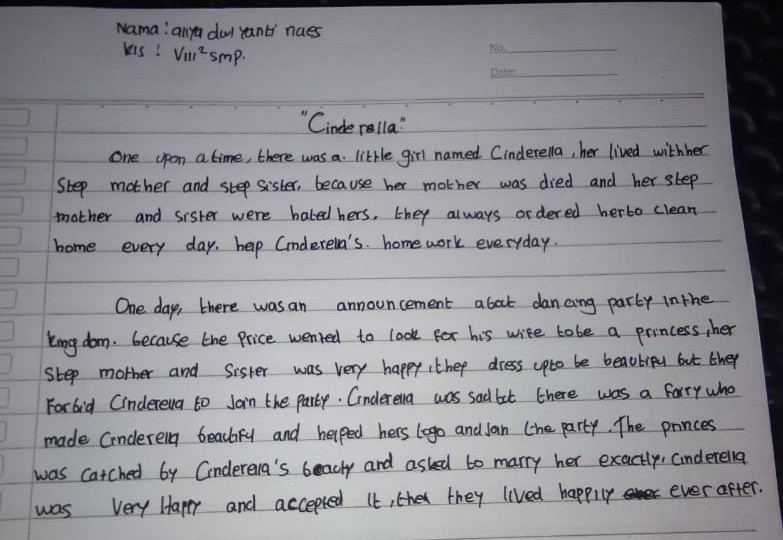 Nama : anya dwi yanti naes
kls : VIII² smp.
No.
Date:
"Cinderella"
One upon a time, there was a little girl named Cinderella, her lived with her
Step mother and step sister, because her mother was died and her step
mother and sister were hated hers. they always ordered her to clean
home every day. help Cinderella's. home work everyday.
One day, there was an announcement about dancing party in the
kingdom. because the Price wented to look for his wife to be a princess, her
Step mother and Sister was very happy, they dress up to be beautiful but they
Forbid Cinderella to Join the party. Cinderella was sad but there was a fairy who
made Cinderella beautify and helped hers to go and Join the party. The princes
was catched by Cinderella's beauty and asked to marry her exactly. Cinderella
was Very Happy and accepted It, then they lived happily ever after.